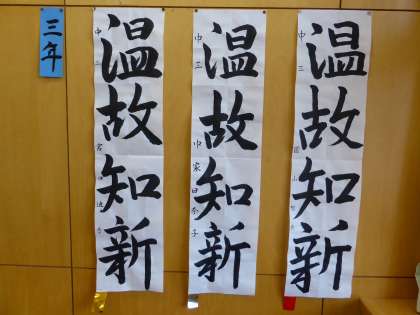 三年
温故知新
中三
温故知新
中三
温故知新
中三